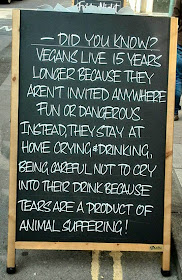 — DID YOU KNOW? —
VEGANS LIVE 15 YEARS
LONGER BECAUSE THEY
AREN'T INVITED ANYWHERE
FUN OR DANGEROUS.
INSTEAD, THEY STAY AT
HOME CRYING & DRINKING,
BEING CAREFUL NOT TO CRY
INTO THEIR DRINK BECAUSE
TEARS ARE A PRODUCT OF
ANIMAL SUFFERING!